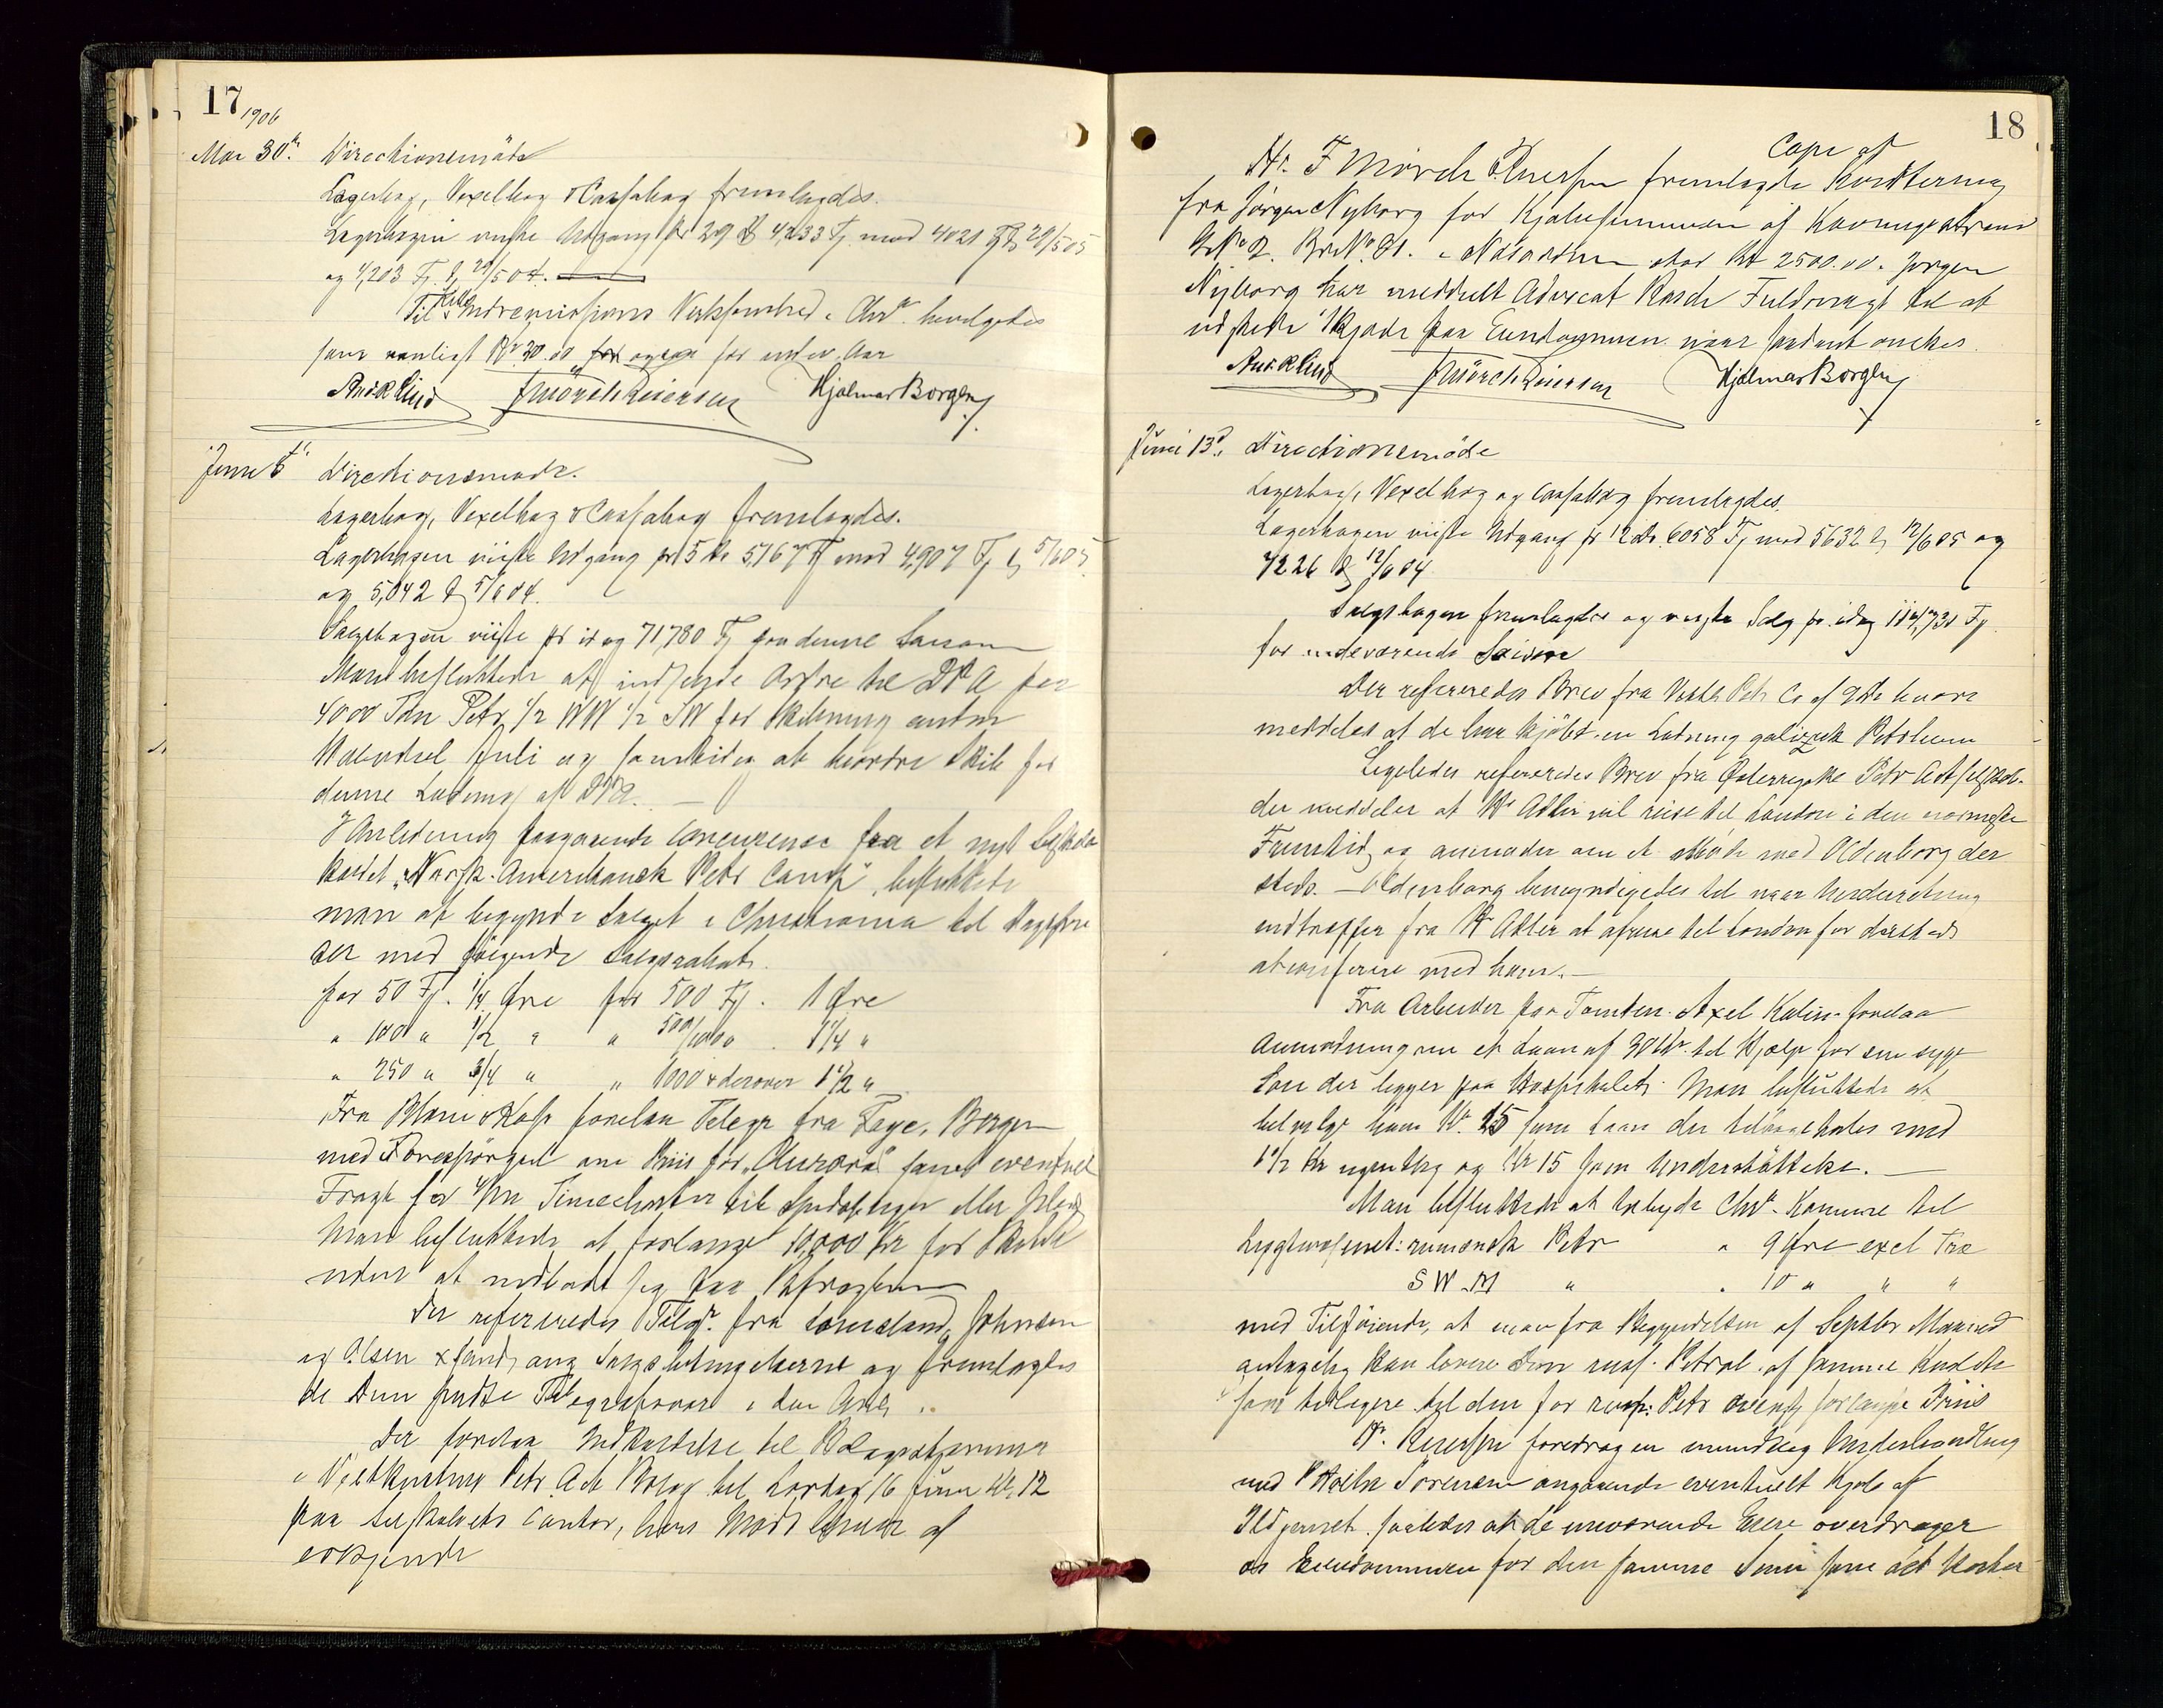 17 1906
Mai 30te Directionsmöde
Lagerbog, Vexelbog & Cassabog fremlagdes.
Lagerbogen viiste Udgang pr 29 ds 4,233 Fj. mod 4021 Fj 29/5 05
og 4,203 Fj. 29/5 04.
Til Indremissions Virksomhed i Chra. bevilgedes
som vanligt Kr 30.00 ogsaa for inder. Aar
And R Lind J Mörch Reiersen Hjalmar Borgen
Juni 6te Directionsmöde.
Lagerbog, Vexelbog & Cassabog fremlagdes.
Lagerbogen viiste Udgang pr 5 ds 5,167 Fj mod 4,907 Fj 5/6 05
og 5,042 5/6 04.
Salgsbogen viiste pr idag 71,780 Fj paa denne Saison
Man besluttede at indsende Ordre til DPA for
4000 Tøn Petr. 1/2 WW 1/2 SW for Skibning
Juli og samtidig at beordre Skib for
denne Ladning af DPA. —
I Anledning paagaaende Concurrence fra et nyt Selskab
kaldet "Norsk-Amerikansk Petr Comp", besluttede
man at begynde Salget i Christiania til
der med følgende Salgsrabat.
for 50 Fj. 1/4 Øre for 500 Fj. 1 Øre
" 100 " 1/2 " " 500/1000 . 1 1/4 "
" 250 " 3/4 " " 1000 & derover 1 1/2 "
Fra forelaa Telegr fra Faye, Bergen
med Forespörgsel om Priis for "Aurora" samt eventuel
Fragt for Timecharter til Spidsbergen eller Island
Man besluttede at forlange 10,000 Kr for Skibet
uden at indlade sig paa Befragtning
Der refereredes Telgr. fra Johnsen
og Olsen Xsand, ang Salgsbetingelserne og fremlagdes
de dem sendte Telegrafsvar i den Anl.
Der forelaa Indkaldelse til
i Vestkystens Petr. Act Bolag til Lördag 16 Juni Kl. 12
paa Selskabets Contor,
erkjendt
18
Copi af
Hr. F Mörch Reiersen fremlagde Kvittering
fra Jörgen Nyborg for Kjøbesummen af
Gr No 2. Br. No. 21. stor Kr 2500.00. Jörgen
Nyborg har meddelt Advocat Rasch Fuldmagt til at
udstede Skjøde paa Eiendommen naar saadant önskes.
And R Lind J Mörch Reiersen Hjalmar Borgen
Juni 13de. Directionsmöde
Lagerbog, Vexelbog og Cassabog fremlagdes.
Lagerbogen viiste Udgang pr 12 ds. 6058 Fj mod 5632 12/6 05 og
4226 12/6 04
Salgsbogen fremlagdes og viiste Salg pr. idag Fj.
for indeværende Saison
Der refereredes Brev fra Petr Co af 9 ds hvori
meddeles at de har kjöbt en Ladning galizisk Petroleum
Ligeledes refereredes Brev fra Österrigske Petr Act Selskab.
der meddeler at Hr Adler vil reise til London i den nærmeste
Fremtid, og anmoder om et Möde med Oldenborg der
steds. — Oldenborg bemyndigedes til naar Underretning
indtræffer fra Hr Adler at afreise til London for dersteds
at conferere med ham. —
Fra Arbeider paa Tomten Axel Kalin forelaa
Anmodning om et Laan af 30 Kr. til Hjælp for sin syge
Søn der ligger paa Hospitalet. Man besluttede at
bevilge ham Kr. 15 som Laan der tilbagebetales med
1 1/2 Kr ugentlig og Kr 15 som Understöttelse. —
Man besluttede at tilbyde Chra. Kommune til
Lygtevæsenet: rumænsk Petr " 9 Øre excl Træ
S W M " . 10 " " "
med Tilföiende, at man fra Begyndelsen af Septbr Maaned
antagelig kan levere dem russ. Petrol. af samme Kvalitet
som tidligere til den for russ: Petr ovenf. forlangte Priis
Hr. Reiersen foredrog en mundtlig Underhandling
med Sörensen angaaende eventuelt Kjøb af
Ildjernet saaledes at de nuværende Eiere overdrager
os Eiendommen for den samme Sum som det koster